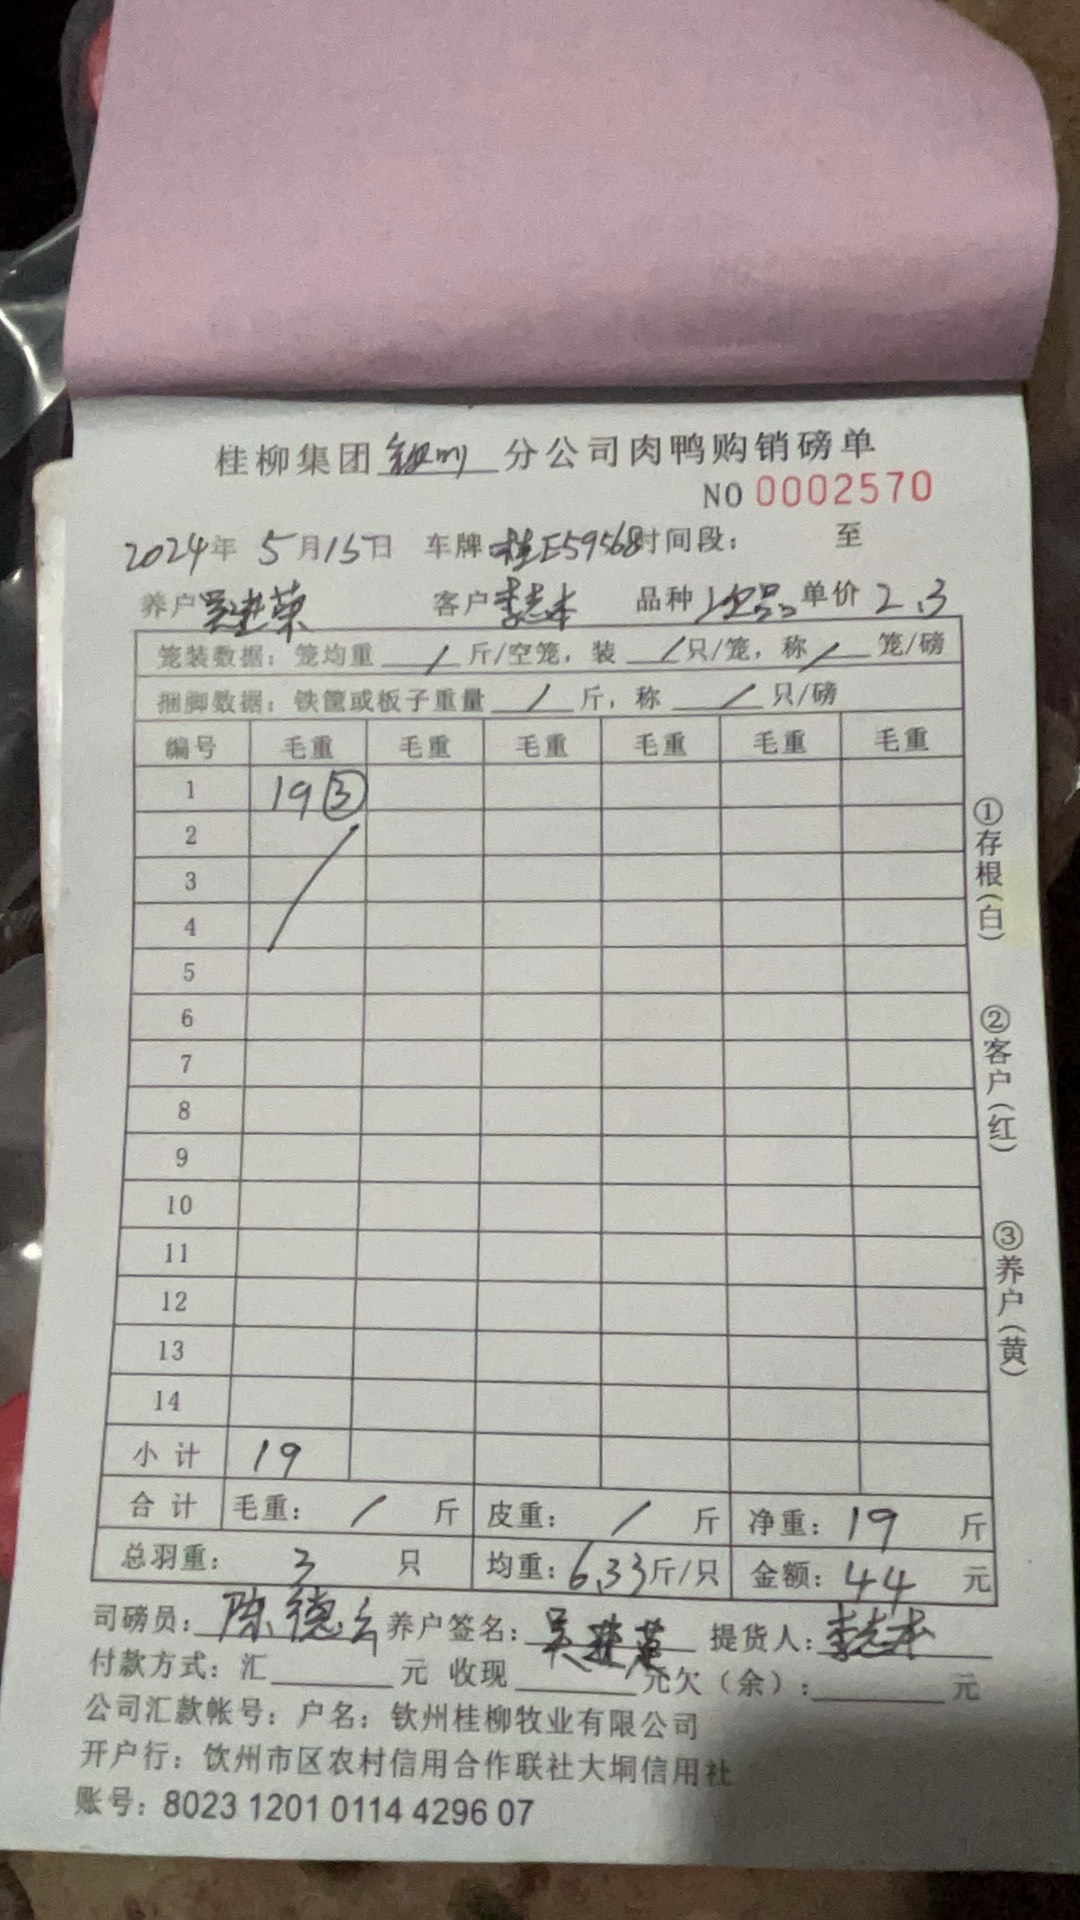 桂柳集团钦州分公司肉鸭购销磅单
NO 0002570
2024年 5月15日 车牌:桂E59568时间段: 至
养户 吴进荣 客户 李志本 品种 次品 单价 2.3
笼装数据: 笼均重 / 斤/空笼, 装 / 只/笼, 称 / 笼/磅
捆脚数据: 铁筐或板子重量 / 斤, 称 / 只/磅
编号 毛重 毛重 毛重 毛重 毛重 毛重
1 19 ③
2
3
4
5
6
7
8
9
10
11
12
13
14
小计 19
合计 毛重: / 斤 皮重: / 斤 净重: 19 斤
总羽重: 3 只 均重: 6.33斤/只 金额: 44 元
司磅员: 陈德 养户签名: 吴进荣 提货人: 李志本
付款方式: 汇 元 收现 元欠(余): 元
公司汇款帐号: 户名: 钦州桂柳牧业有限公司
开户行: 饮州市区农村信用合作联社大垌信用社
账号: 8023 1201 0114 4296 07
①存根(白)
②客户(红)
③养户(黄)